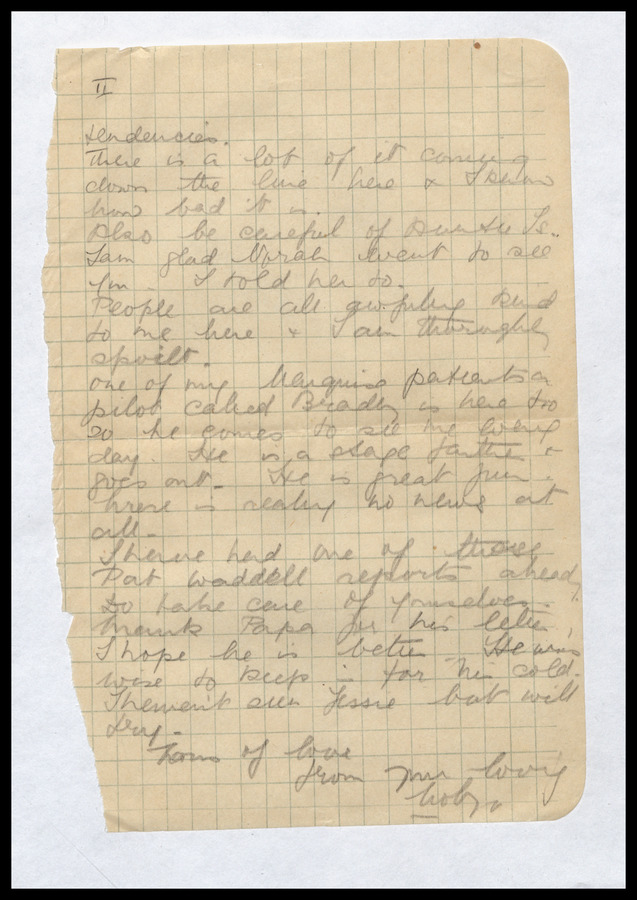 II
tendencies.
There is a lot of it coming
down the line here & I know
how bad it is.
Also be careful of
I am glad Norah went to see
you. I told her to.
People are all awfully kind
to me here & I am thoroughly
spoilt.
one of my patients a
pilot called Bradley is here too
so he comes to see me every
day. He is a stage further &
goes out. He is great fun.
There is really no news at
all.
I have had one of these
Pat Waddell reports already.
Do take care of yourselves.
Thank Papa for his letter,
I hope he is better. He was
wise to keep in for his cold.
I haven't seen Jessie but will
try.
Tons of love
from your loving